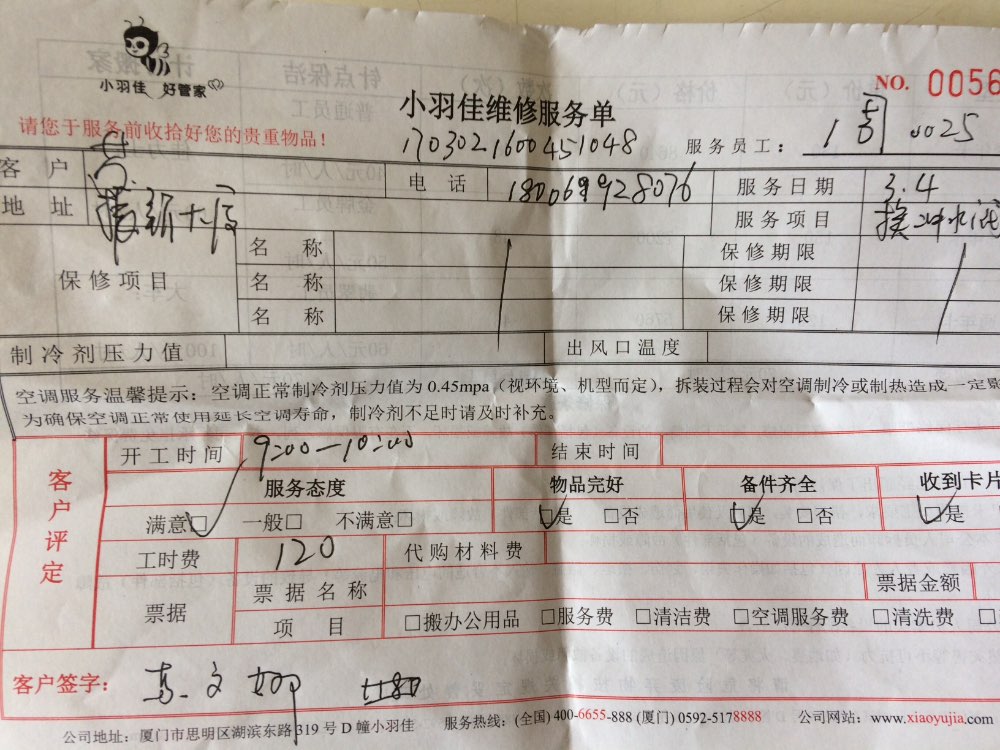 小羽佳 好管家
NO. 0056
小羽佳维修服务单
请您于服务前收拾好您的贵重物品！
1703021600451048
服务员工： 0025
客户
电话 180069928076
服务日期 3.4
地址 新大厦
服务项目 换冲水阀
保修项目
名称 保修期限
名称 保修期限
名称 保修期限
制冷剂压力值 出风口温度
空调服务温馨提示：空调正常制冷剂压力值为 0.45mpa（视环境、机型而定），拆装过程会对空调制冷或制热造成一定
为确保空调正常使用延长空调寿命，制冷剂不足时请及时补充。
客户评定
开工时间 9:00—10:00 结束时间
服务态度 物品完好 备件齐全 收到卡片
满意□ 一般□ 不满意□ □是 □否 □是 □否 □是
工时费 120 代购材料费
票据
票据名称 票据金额
项目 □搬办公用品 □服务费 □清洁费 □空调服务费 □清洗费 □
客户签字：
公司地址：厦门市思明区湖滨东路 319 号 D 幢小羽佳 服务热线：(全国) 400-6655-888 (厦门) 0592-5178888 公司网站：www.xiaoyujia.com